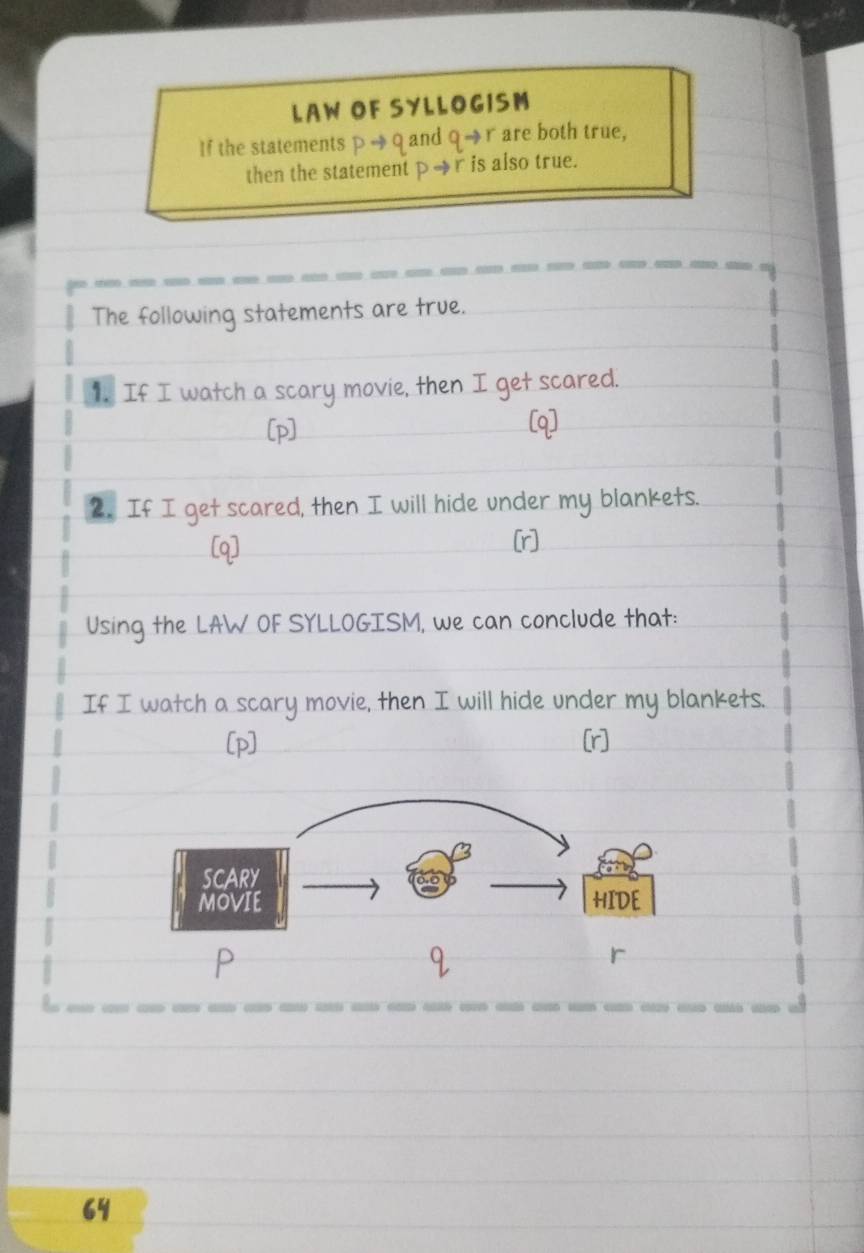 LAW OF SYLLOGISM
If the statements p → q and q → r are both true,
then the statement p → r is also true.
The following statements are true.
1. If I watch a scary movie, then I get scared.
[p] [q]
2. If I get scared, then I will hide under my blankets.
[q] [r]
Using the LAW OF SYLLOGISM, we can conclude that:
If I watch a scary movie, then I will hide under my blankets.
[p] [r]
SCARY
MOVIE
HIDE
p q r
64